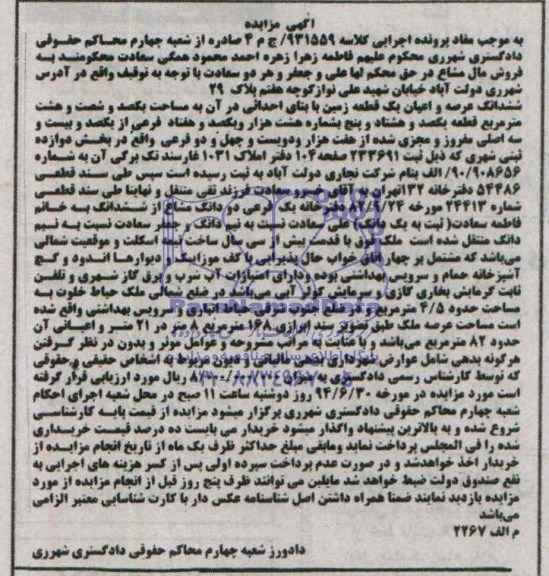 آگهی مزایده
به موجب مفاد پرونده اجرایی کلاسه ۹۳۱۵۵۹/ ج م ۴ صادره از شعبه چهارم محاکم حقوقی
دادگستری شهرری محکوم علیهم فاطمه زهرا زهره احمد محمود همگی سعادت محکومند به
فروش مال مشاع در حق محکم لها علی و جعفر و هر دو سعادت با توجه به توقیف واقع در آدرس
شهرری دولت آباد خیابان شهید علی نوازکوچه هفتم پلاک ۲۹
ششدانگ عرصه و اعیان یک قطعه زمین با بنای احداثی در آن به مساحت یکصد و شصت و هشت
مترمربع قطعه یکصد و هشتاد و پنج بشماره هشت هزار ویکصد و هفتاد فرعی از یکصد و بیست و
سه اصلی مفروز و مجزی شده از هفت هزار ودویست و چهل و دو فرعی واقع در بخش دوازده
ثبتی شهری که ذیل ثبت ۲۳۳۶۹۱ صفحه ۱۰۴ دفتر املاک ۱۰۳۱ فارسند تک برگی آن به شماره
۹۰/۹۰۸۶۵۶/ الف بنام شرکت نجاری دولت آباد به ثبت رسیده است سپس طی سند قطعی
۵۴۴۸۶ دفترخانه ۱۳۲تهران به آقای خسرو سعادت فرزند تقی منتقل و نهایتا طی سند قطعی
شماره ۲۴۴۱۳ مورخه ۸۲/۹/۲۴ دفترخانه یک فرعی دو دانگ مشاع از ششدانگ به خانم
فاطمه سعادت( ثبت به یک دانگ) علی سعادت نسبت به نیم دانگ و جعفر سعادت نسبت به نیم
دانگ منتقل شده است ملک فوق با قدمت بیش از سی سال ساخت نیمه اسکلت و موقعیت شمالی
می‌باشد که مشتمل بر چهار اتاق خواب حال پذیرایی با کف موزاییک و دیوارها اندود و گچ
آشپزخانه حمام و سرویس بهداشتی بوده ودارای امتیازات آب شرب و برق گاز شهری و تلفن
ثابت گرمایش بخاری گازی و سرمایش کولر آبی می‌باشد در ضلع شمالی ملک حیاط خلوت به
مساحت حدود ۴/۵ مترمربع و در ضلع جنوب شرقی حیاط انباری و سرویس بهداشتی واقع شده
است مساحت عرصه ملک طبق تصویر سند ابرازی ۱۶۸ مترمربع ۸ متر در ۲۱ متر و اعیانی آن
حدود ۸۲ مترمربع می‌باشد و با عنایت به مراتب مشروحه و عوامل موثر و بدون در نظر گرفتن
هرگونه بدهی شامل عوارض شهرداری بیمه مالیاتی و دیون مربوط به اشخاص حقیقی و حقوقی
که توسط کارشناس رسمی دادگستری به میزان ریال مورد ارزیابی قرار گرفته
است مورد مزایده در مورخه ۹۴/۶/۳۰ روز دوشنبه ساعت ۱۱ صبح در محل شعبه اجرای احکام
شعبه چهارم محاکم حقوقی دادگستری شهرری برگزار میشود مزایده از قیمت پایه کارشناسی
شروع شده و به بالاترین پیشنهاد واگذار میشود خریدار می بایست ده درصد قیمت خریداری
شده را فی المجلس پرداخت نماید ومابقی مبلغ حداکثر ظرف یک ماه از تاریخ انجام مزایده از
خریدار اخذ خواهدشد و در صورت عدم پرداخت سپرده اولی پس از کسر هزینه های اجرایی به
نفع صندوق دولت ضبط خواهد شد مایلین می توانند ظرف پنج روز قبل از انجام مزایده از مورد
مزایده بازدید نمایند ضمنا همراه داشتن اصل شناسنامه عکس دار یا کارت شناسایی معتبر الزامی
می‌باشد
م الف ۲۲۶۷
دادورز شعبه چهارم محاکم حقوقی دادگستری شهرری
ParsNamadData